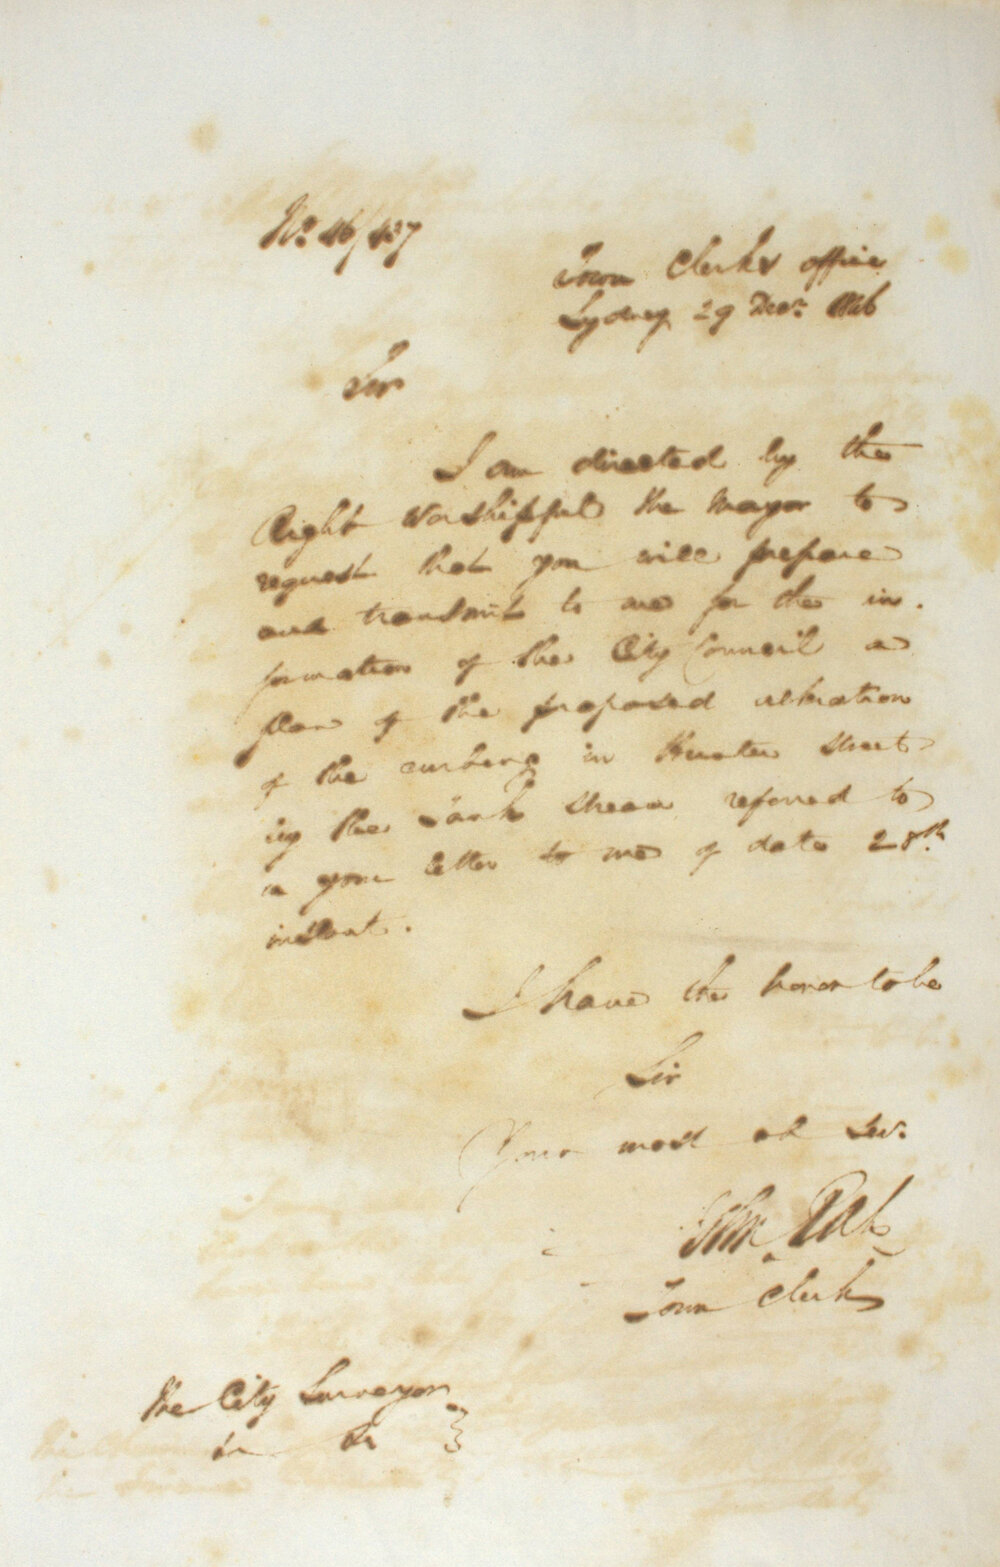 No. 46/437
Town Clerks office
Sydney 29 Decr. 1846
Sir
I am directed by the
Right Worshipful the Mayor to
request that you will prepare
and transmit to me for the in-
formation of the City Council a
plan of the proposed alteration
of the curbing in Hunter Street
by the Tank Stream referred to
in your letter to me of date 28th.
instant.
I have the honor to be
Sir
Your most ob Ser.
Town Clerk
The City Surveyor